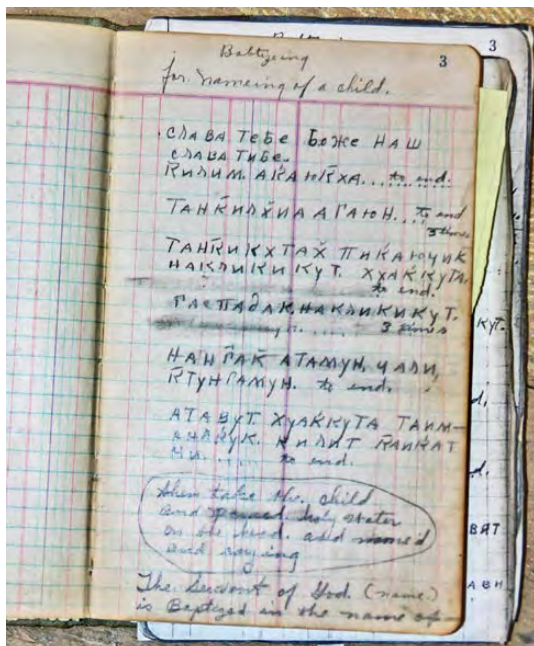 Baltizeing
3
for nameing of a child.
СЛАВА ТЕБЕ БОЖЕ НАШ
СЛАВА ТИБЕ.
К̆ИЛИМ. АК̆АЮК̆ХА.... to end.
ТАНК̆ИЛХ̆ИА АГАЮН... to end
3 times
ТАНК̆ИКХТАХ̆ ПИК̆АЮЧИК
НАКЛИКИКУТ. ХУАК̆КУТА.
to end.
ГАСПАДАК. НАКЛИКИКУТ.
3 times
НАНГ̆АК̆ АТАМУН. ЧАЛИ,
К̆ТУНГАМУН. to end.
АТАВУТ. ХУАК̆КУТА ТАИМ-
to end.
then take the child
and holy water
on the head. and named
and saying
The Servant of God. (name)
is Baptized in the name of
3
КУТ.
d,
d.
ВЯТ
АВН